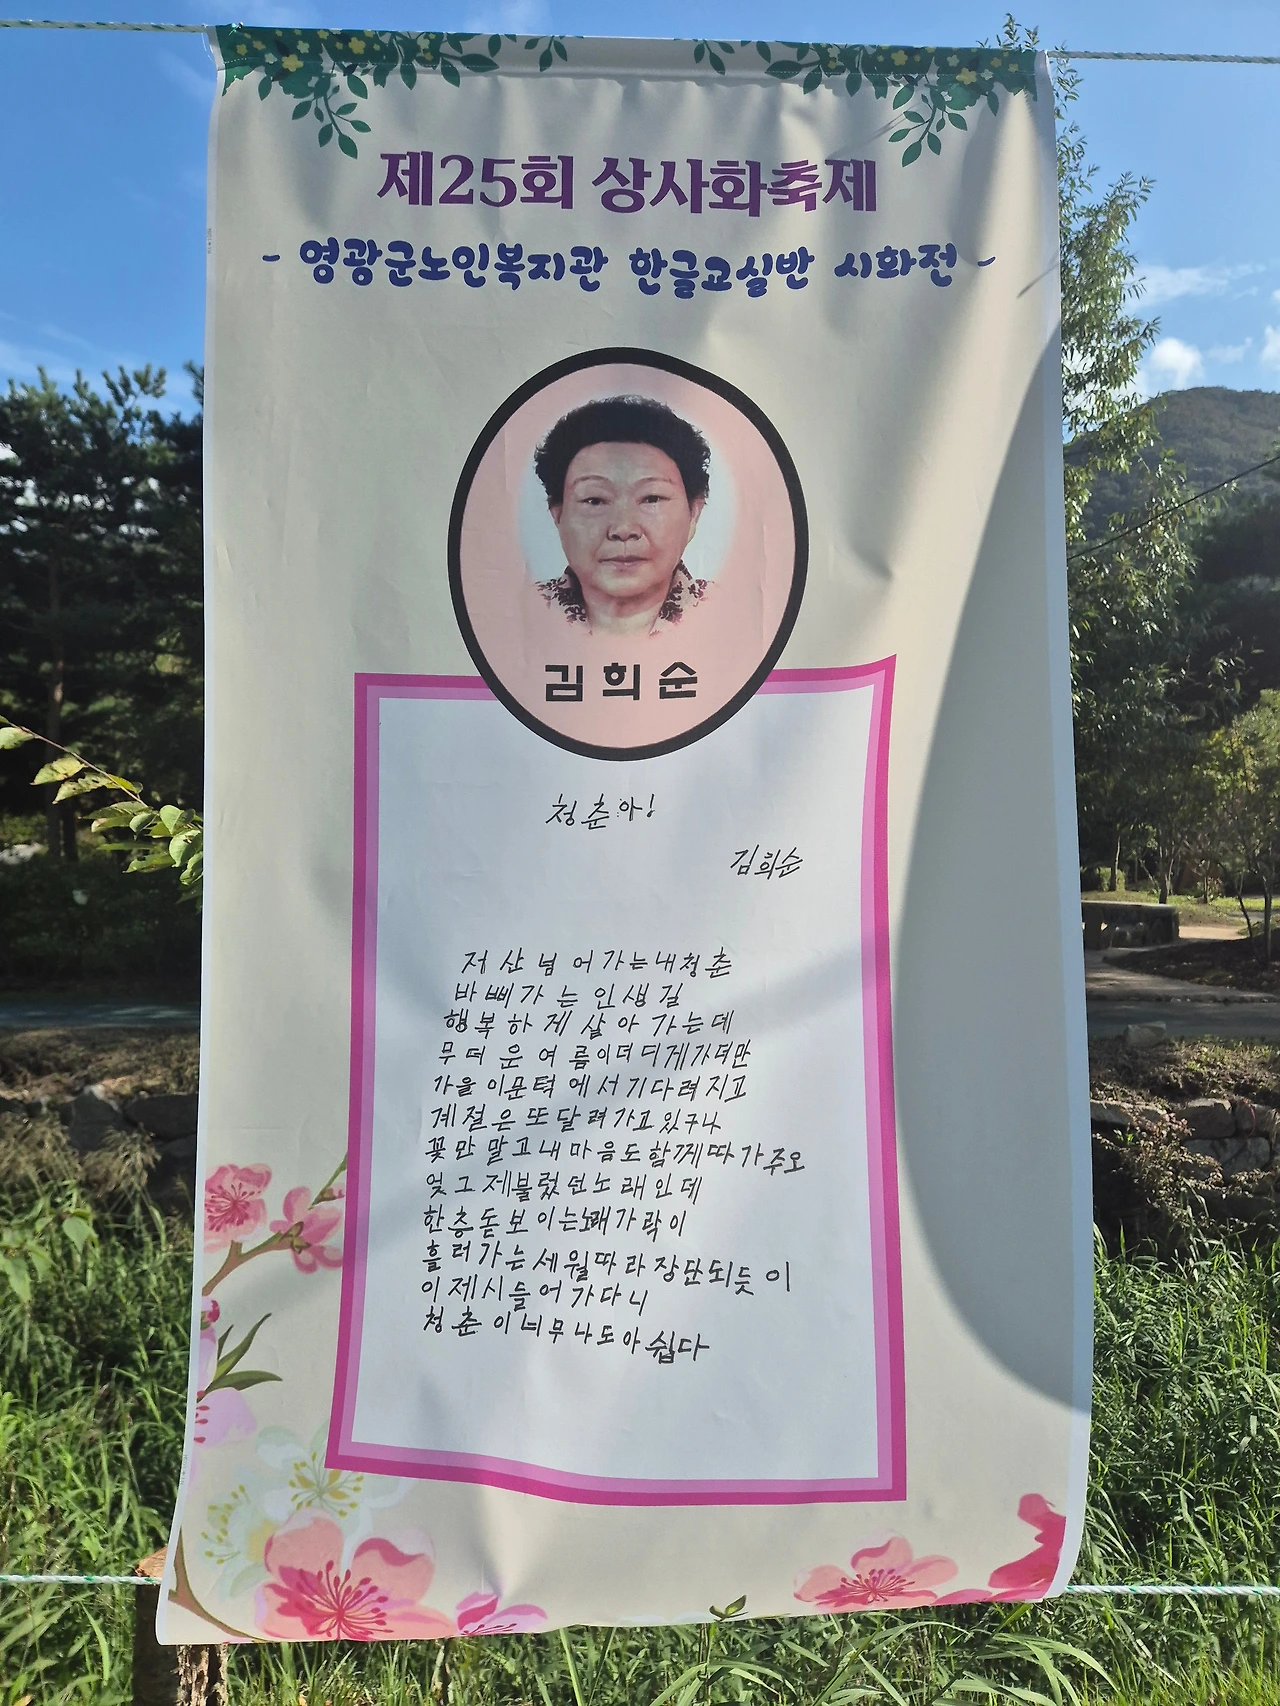 제25회 상사화축제
- 영광군노인복지관 한글교실반 시화전 -
김희순
청춘아!
김희순
저 산 넘 어 가는 내 청춘
바 삐 가 는 인 생 길
행복 하 게 살 아 가는데
무 더 운 여 름이 더 디게 가더만
가을 이 문턱 에 서 기다려 지고
계절은 또 달 려 가고 있구나
꽃 만 말 고 내 마 음 도 함께 따 가 주오
엊 그 제 불렀 던 노 래 인 데
한 층 돋 보 이는 노래 가 락 이
흘러 가 는 세 월 따 라 장단 되듯 이
이 제 시 들 어 가다 니
청춘 이 너 무 나 도 아 쉽다